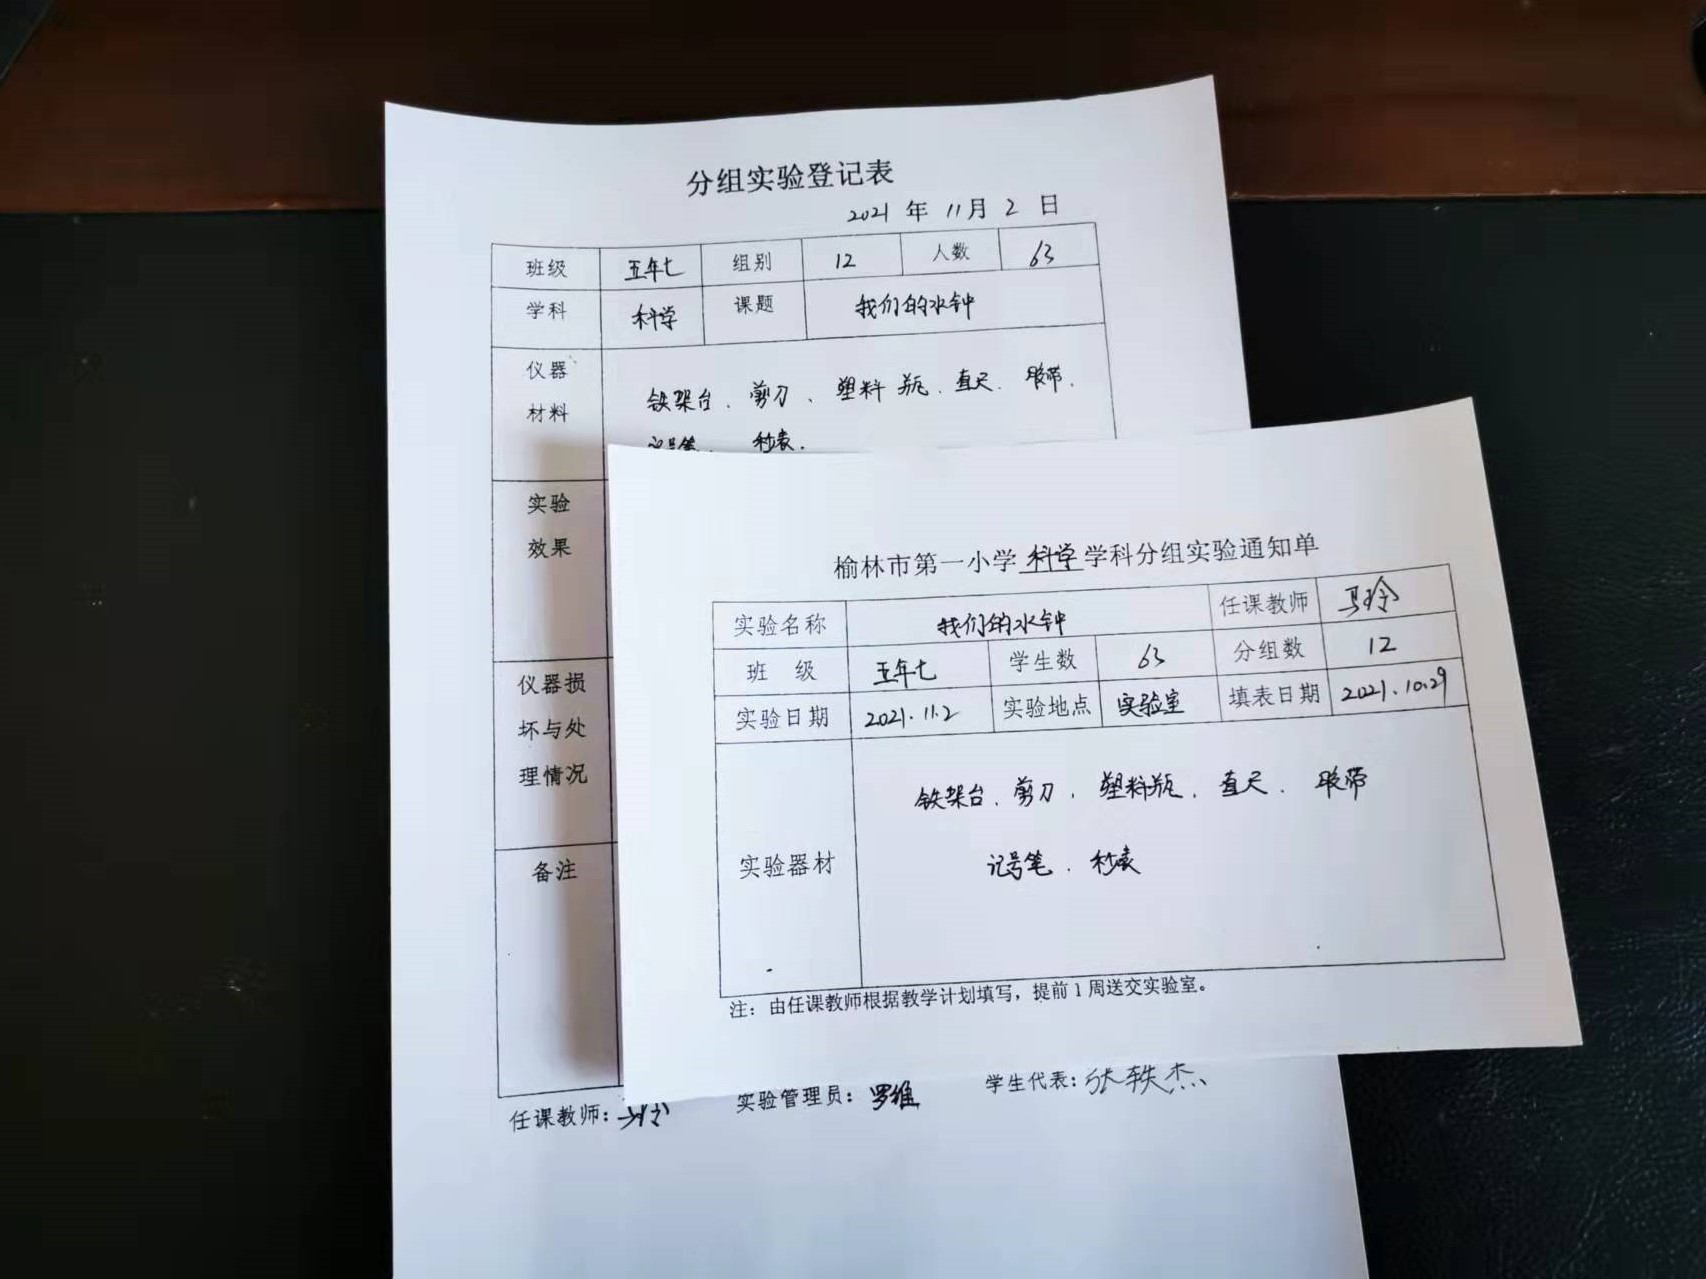 分组实验登记表
2021 年 11月 2 日
班级 五年七 组别 12 人数 63
学科 科学 课题 我们的水钟
仪器材料 铁架台、剪刀、塑料瓶、直尺、胶带、
记号笔、秒表.
实验
效果
仪器损
坏与处
理情况
备注
任课教师: 马玲 实验管理员: 罗维 学生代表: 张轶杰
榆林市第一小学科学学科分组实验通知单
实验名称 我们的水钟 任课教师 马玲
班 级 五年七 学生数 63 分组数 12
实验日期 2021.11.2 实验地点 实验室 填表日期 2021.10.29
铁架台、剪刀、塑料瓶、直尺、胶带
实验器材 记号笔、秒表
注: 由任课教师根据教学计划填写, 提前1周送交实验室。